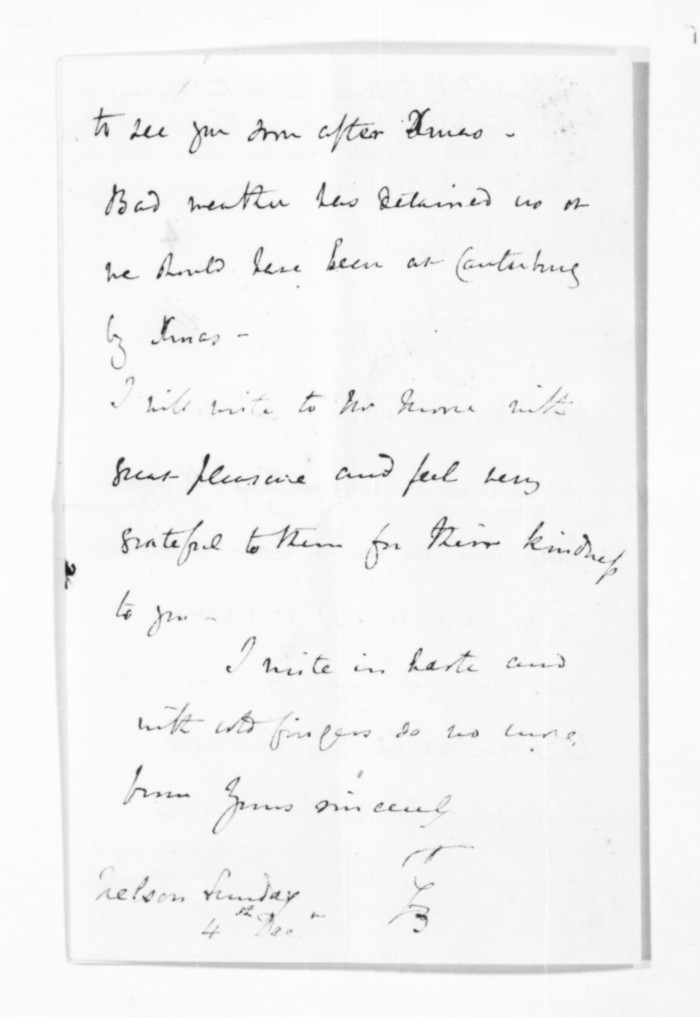 to see you soon after Xmas -
Bad weather has detained us or
we should have been at Canterbury
by Xmas -
I will write to Mr with
great pleasure and feel very
grateful to them for their kindness
to you -
I write in haste and
with cold fingers so no more
from Yours sincerely
Nelson Sunday
4th Dec